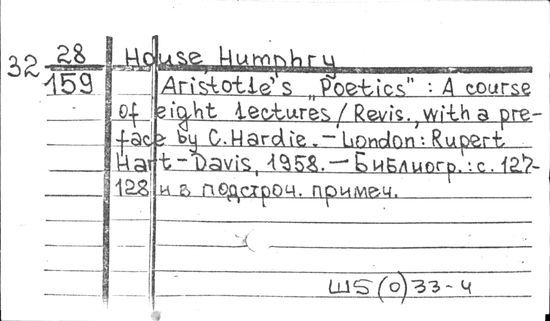 32 28 House, Humphry
159 Aristotle's „Poetics" : A course
of eight lectures / Revis., with a pre-
face by C. Hardie. – London : Rupert
Hart-Davis, 1958. – Библиогр.: с. 127-
128 и в подстроч. примеч.
Ш5(0)33-4